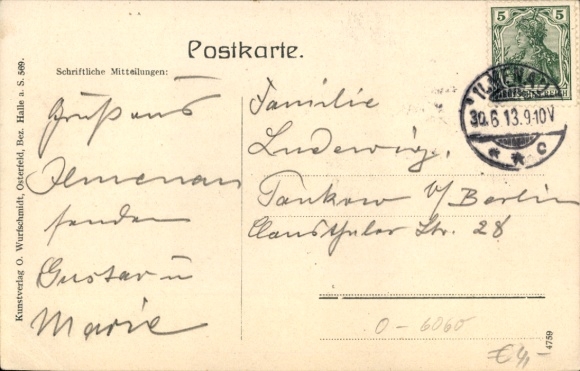 Postkarte.
Schriftliche Mitteilungen:
Gruß aus
Ilmenau
senden
Gustav u
Marie
Familie
Ludewig,
Pankow b/Berlin
Clausthaler Str. 28
5 5
ILMENAU
30.6.13.9-10V
* * c
Kunstverlag O. Wurfschmidt, Osterfeld, Bez. Halle a. S. 509.
0-6060
€ 4,-
4759